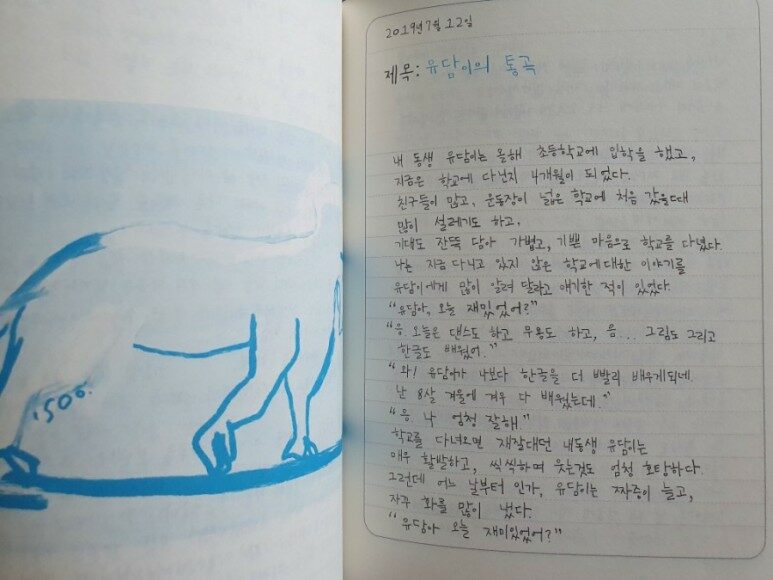 1500.
2019년 7월 22일
제목: 유담이의 통곡
내 동생 유담이는 올해 초등학교에 입학을 했고,
지금은 학교에 다닌지 4개월이 되었다.
친구들이 많고, 운동장이 넓은 학교에 처음 갔을때
많이 설레기도 하고,
기대도 잔뜩 담아 가볍고, 기쁜 마음으로 학교를 다녔다.
나는 지금 다니고 있지 않은 학교에대한 이야기를
유담이에게 많이 알려 달라고 얘기한 적이 있었다.
"유담아, 오늘 재밌었어?"
"응 오늘은 댄스도 하고 무용도 하고, 음... 그림도 그리고
한글도 배웠어."
"와! 유담이가 나보다 한글을 더 빨리 배우게되네.
난 8살 겨울에 겨우 다 배웠는데."
"응 나 엄청 잘해."
학교를 다녀오면 재잘대던 내동생 유담이는
매우 활발하고, 씩씩하며 웃는것도 엄청 호탕하다.
그런데 어느 날부터 인가, 유담이는 짜증이 늘고,
자꾸 화를 많이 냈다.
"유담아 오늘 재미있었어?"